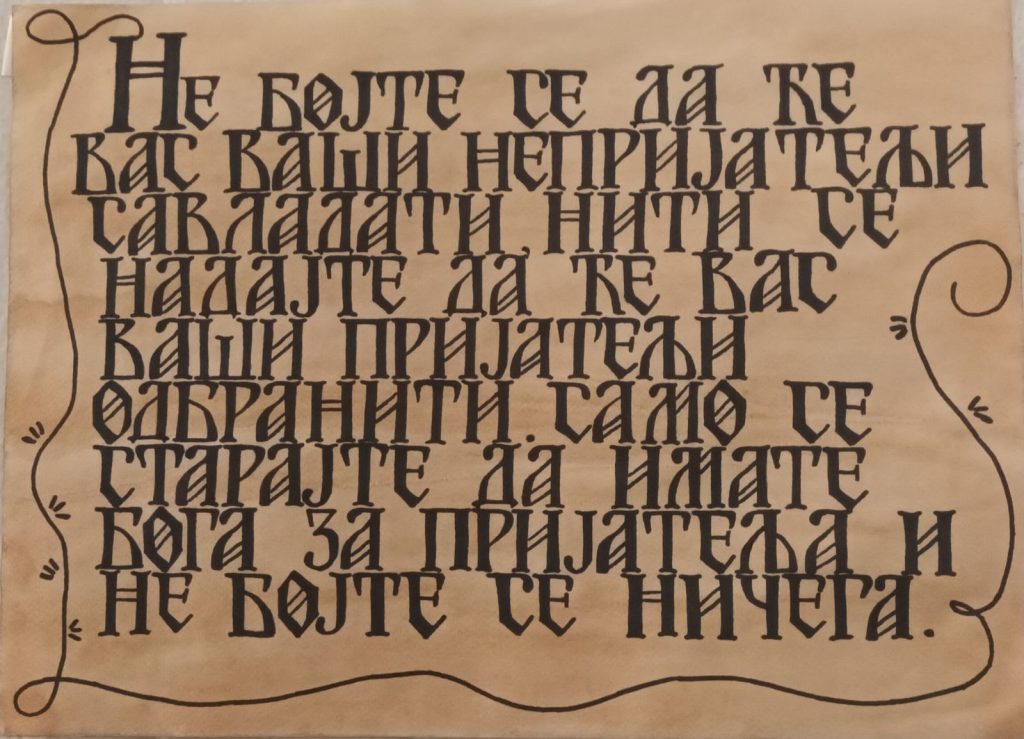 Не бојте се да ће
вас ваши непријатељи
савладати, нити се
надајте да ће вас
ваши пријатељи
одбранити. Само се
старајте да имате
Бога за пријатеља и
не бојте се ничега.